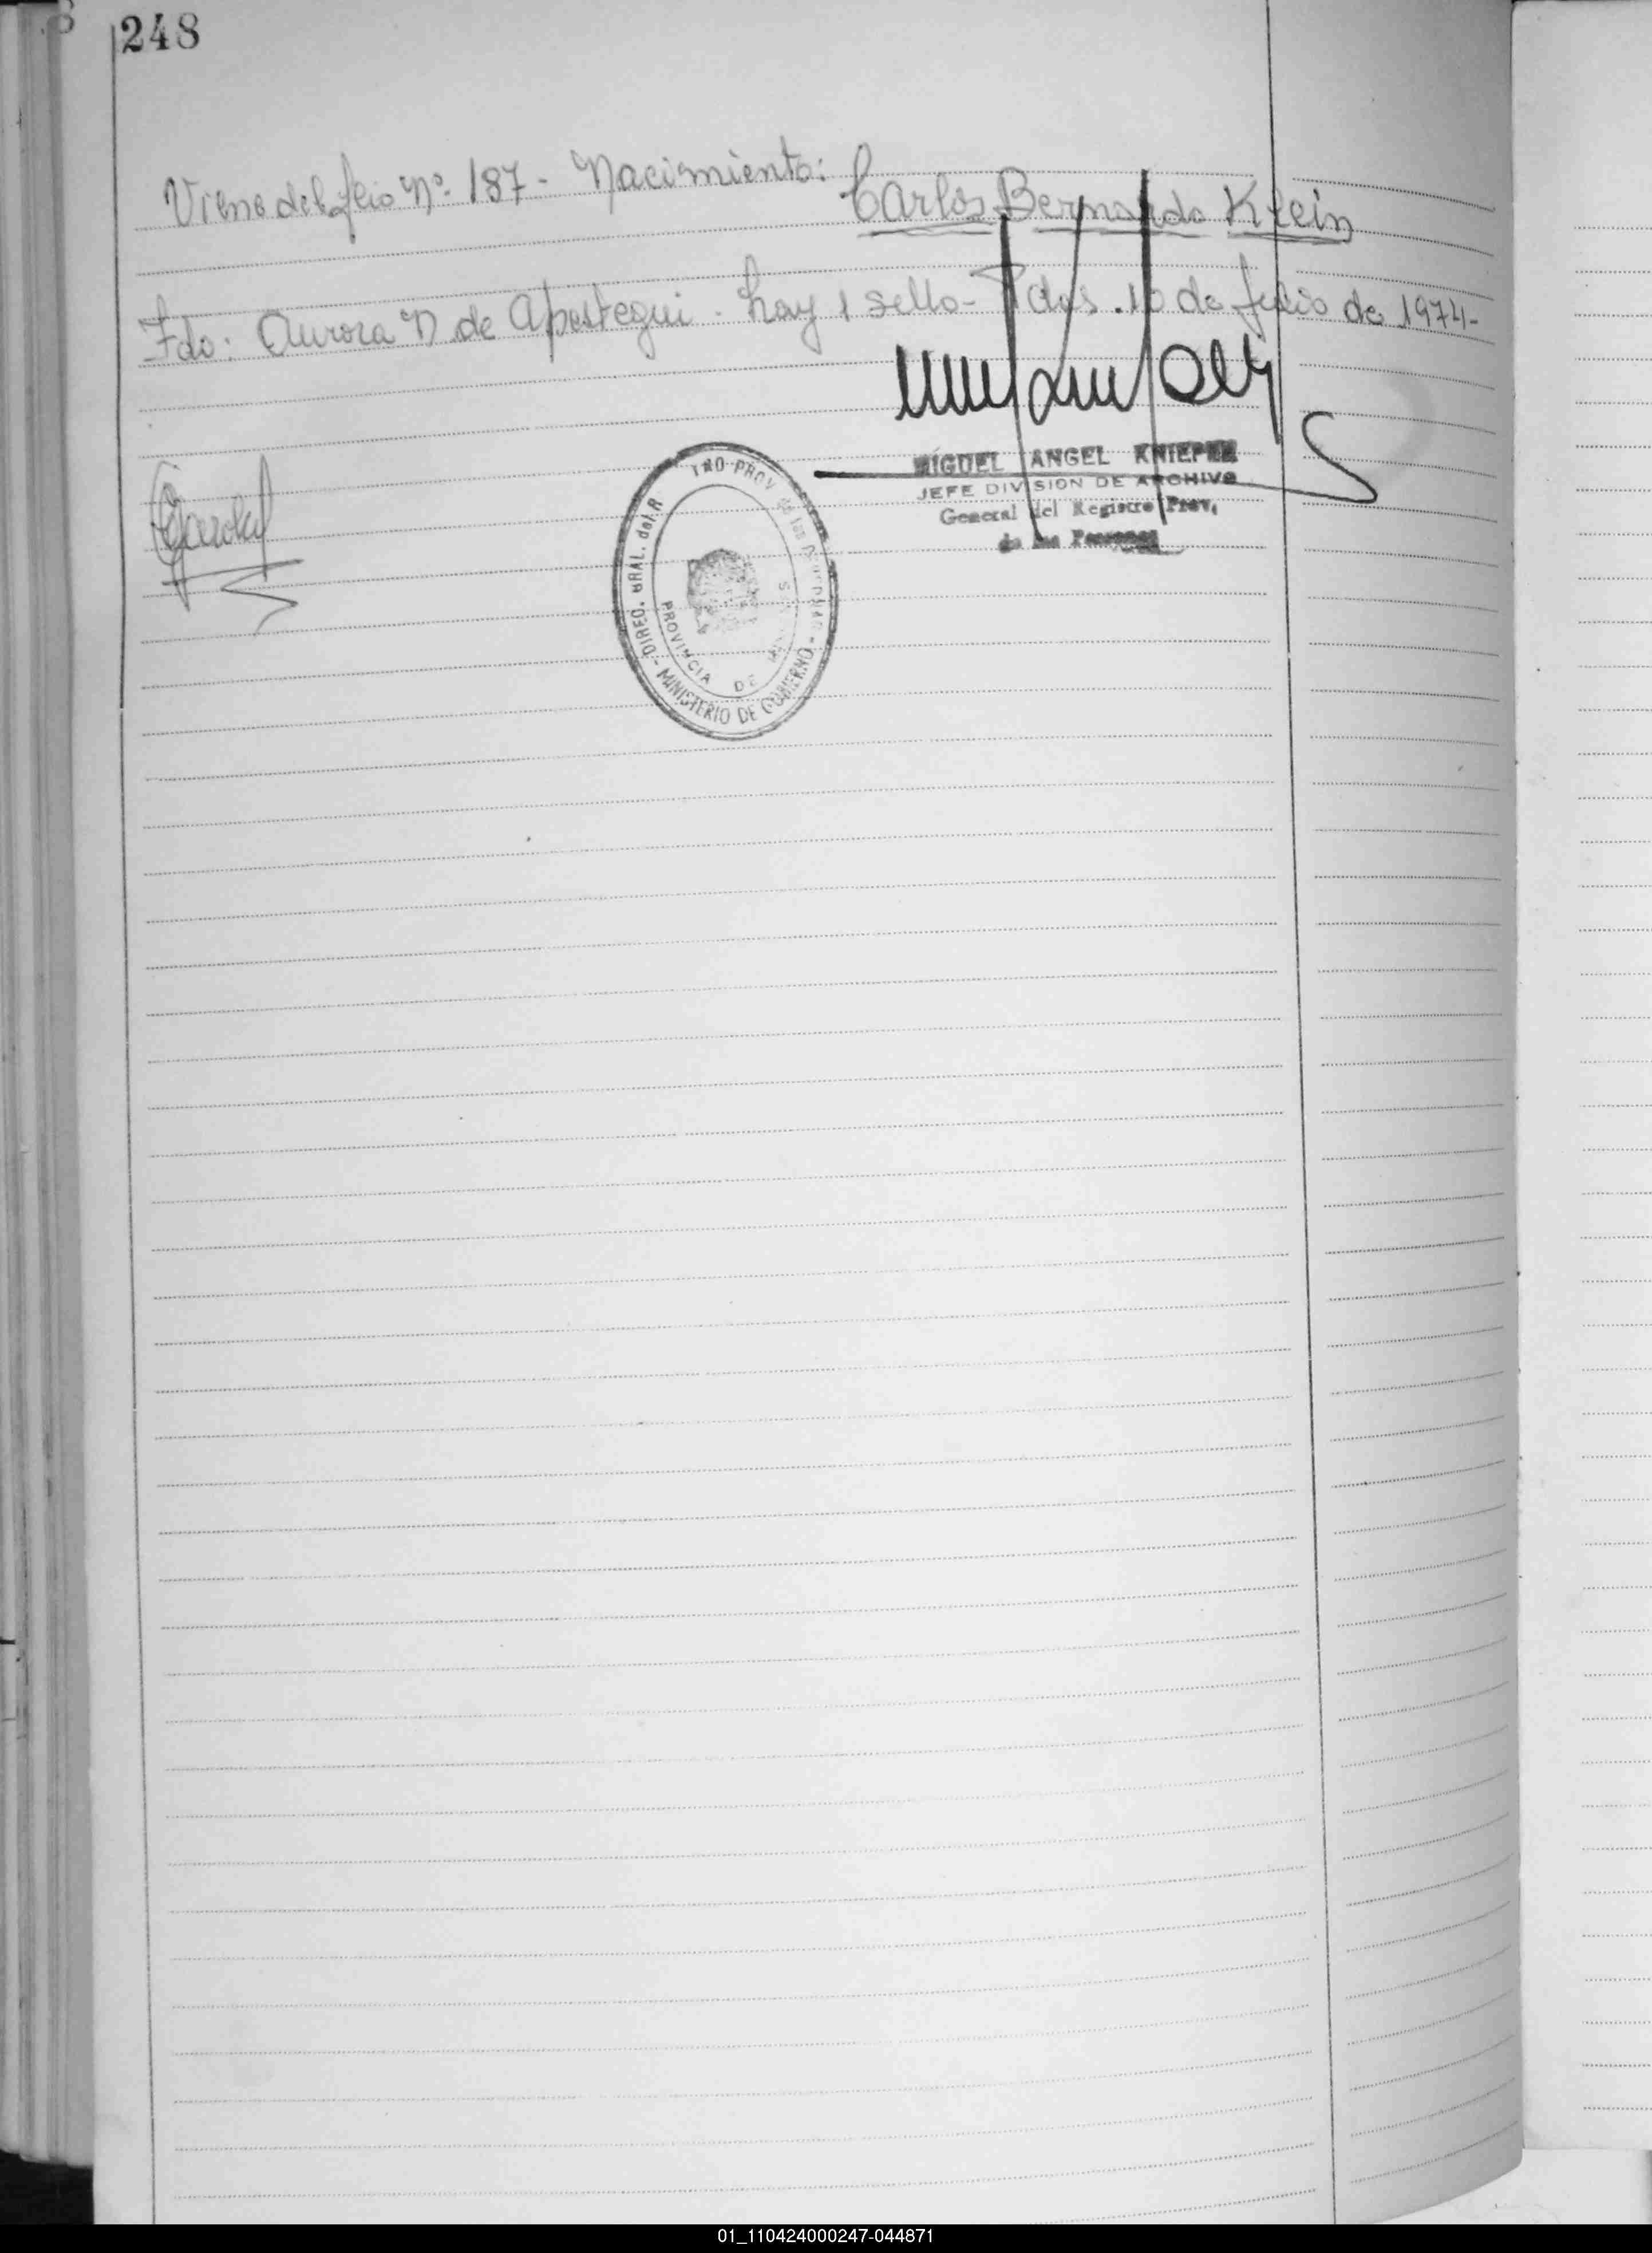 248
Viene del folio Nº 187 - Nacimiento: Carlos Bernardo Klein
Fdo: Aurora N de Apostegui. hay 1 sello - Pdas. 10 de Julio de 1974-
MIGUEL ANGEL KNIEPER
JEFE DIVISION DE ARCHIVO
General del Registro Prov.
de las Personas
DIREC. GRAL. del R TRO PROV de las Personas - MINISTERIO DE GOBIERNO -
PROVINCIA DE
01_110424000247-044871